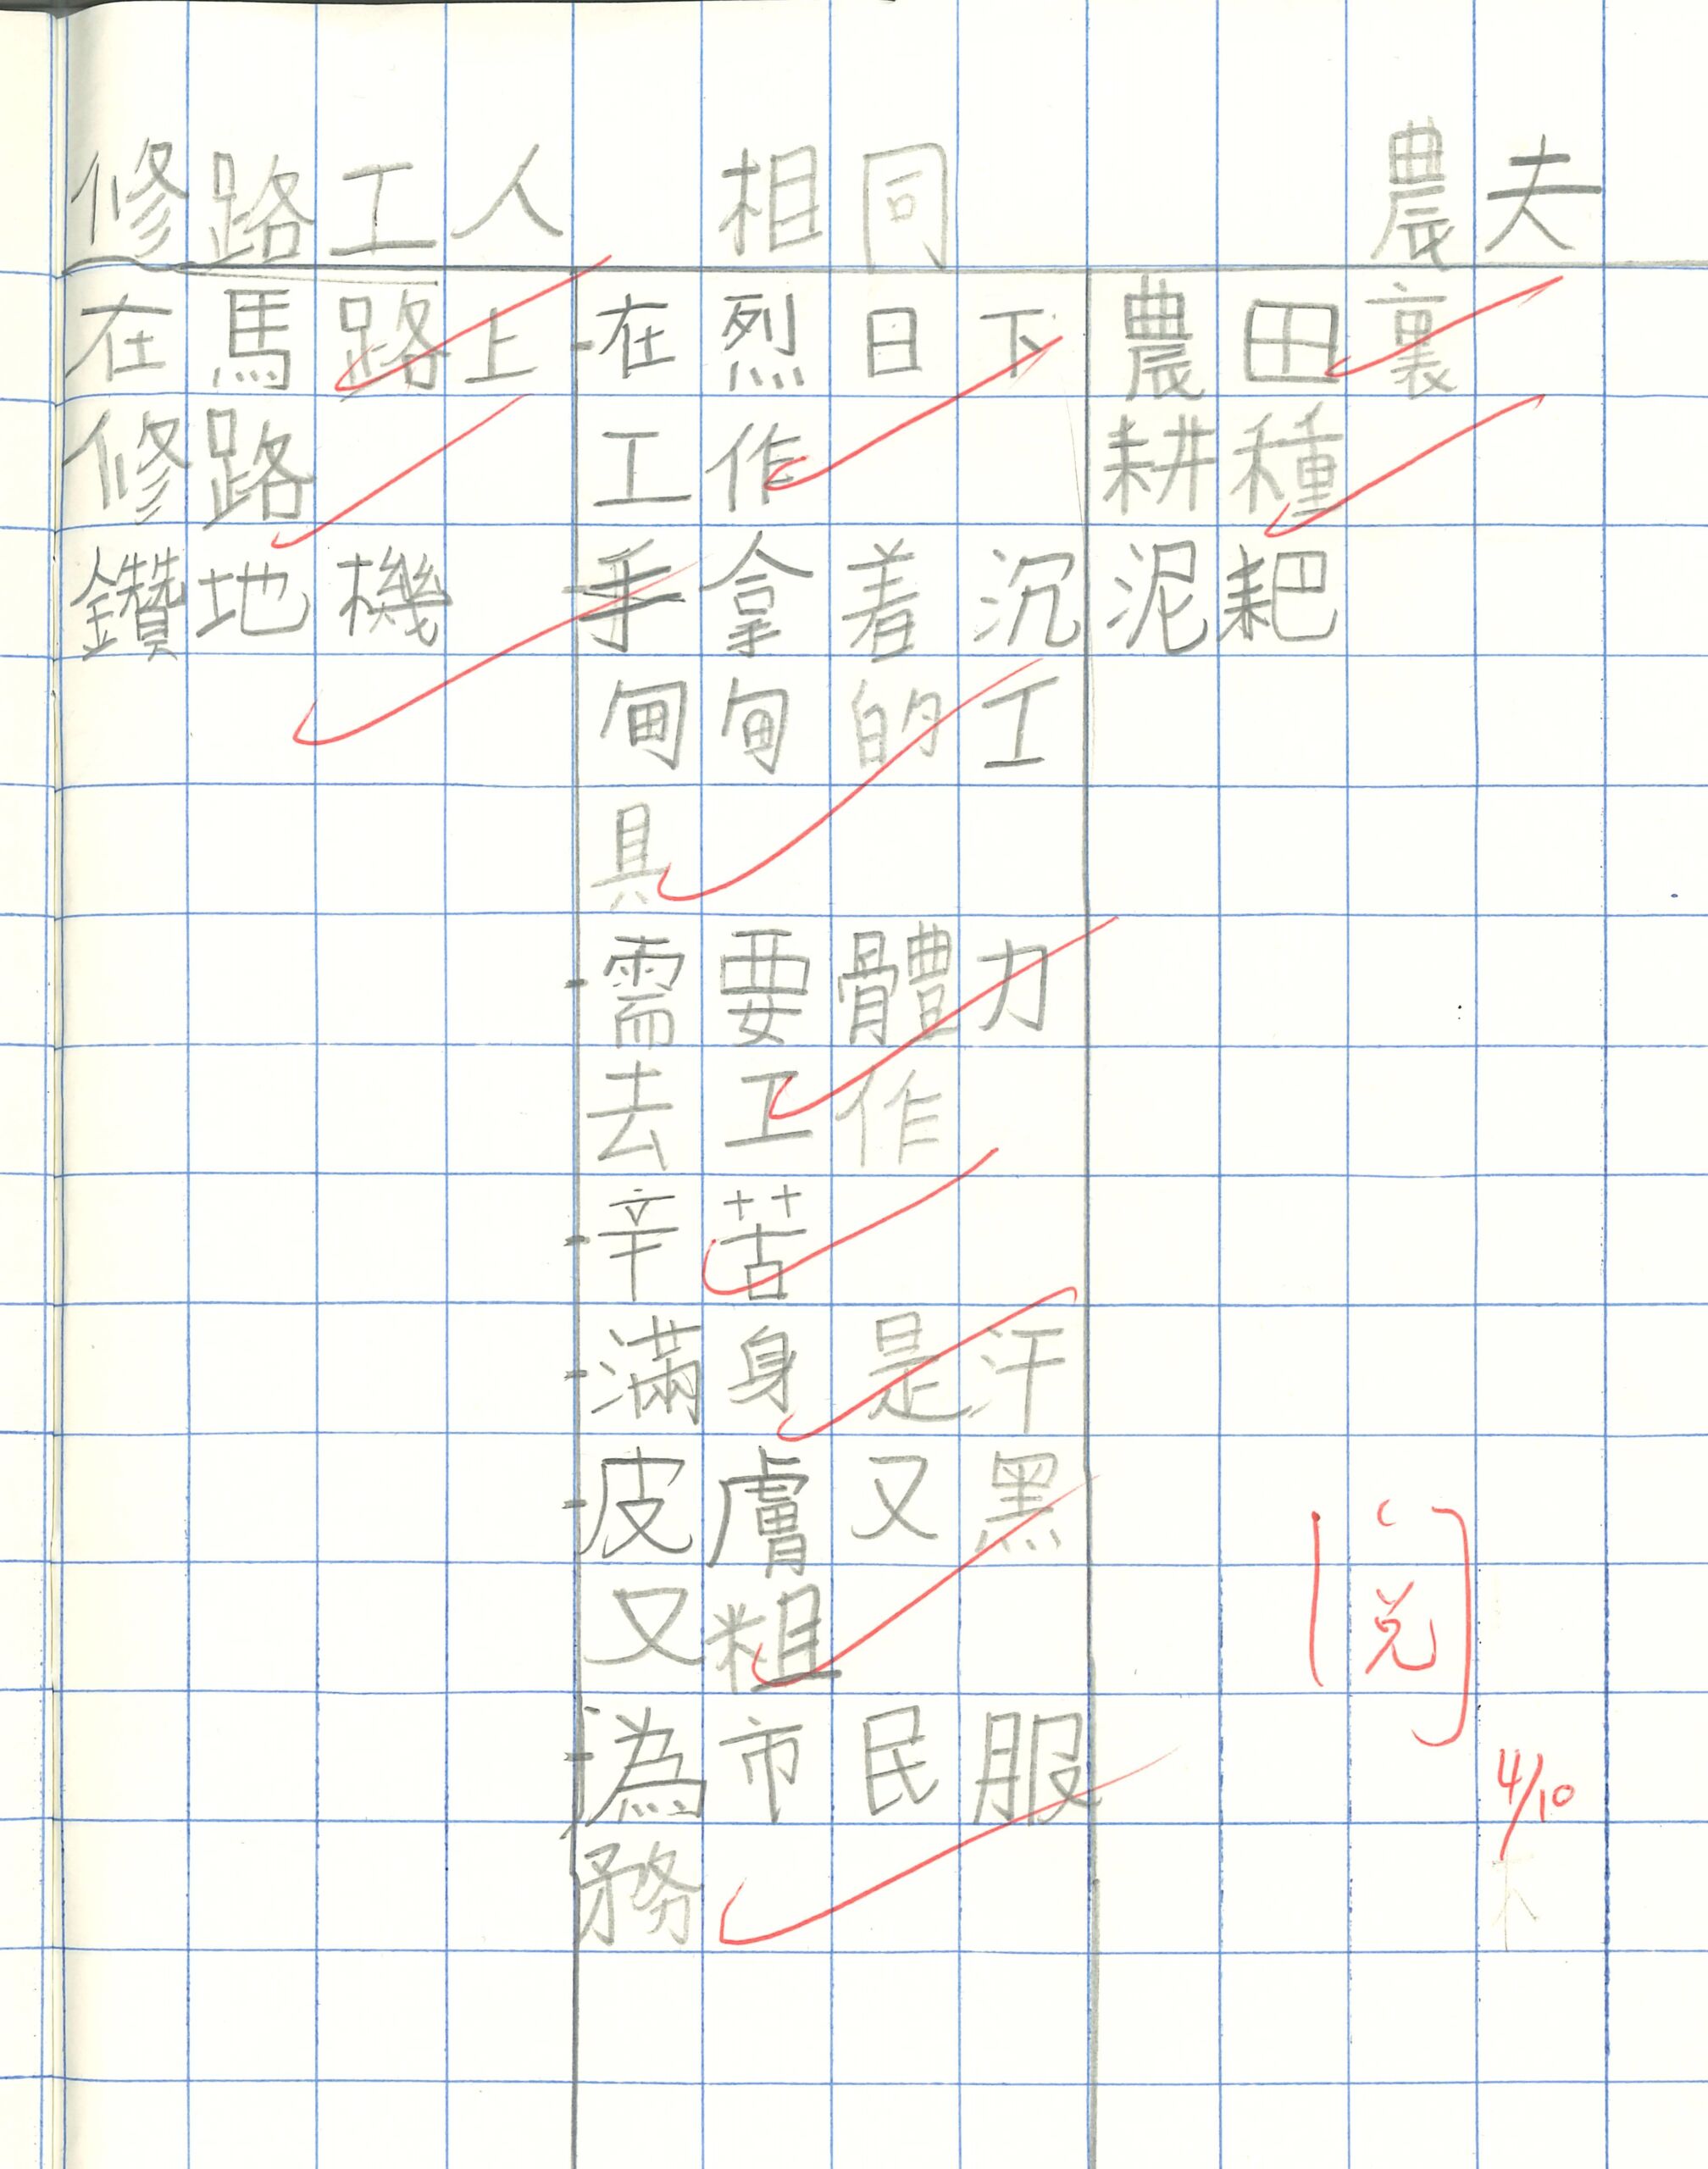 修路工人 相同 農夫
在馬路上 -在烈日下 農田裏
修路 工作 耕種
鑽地機 -手拿着沉 泥耙
甸甸的工
具
-需要體力
去工作
-辛苦
-滿身是汗
-皮膚又黑
又粗
-為市民服
務
閱
4/10